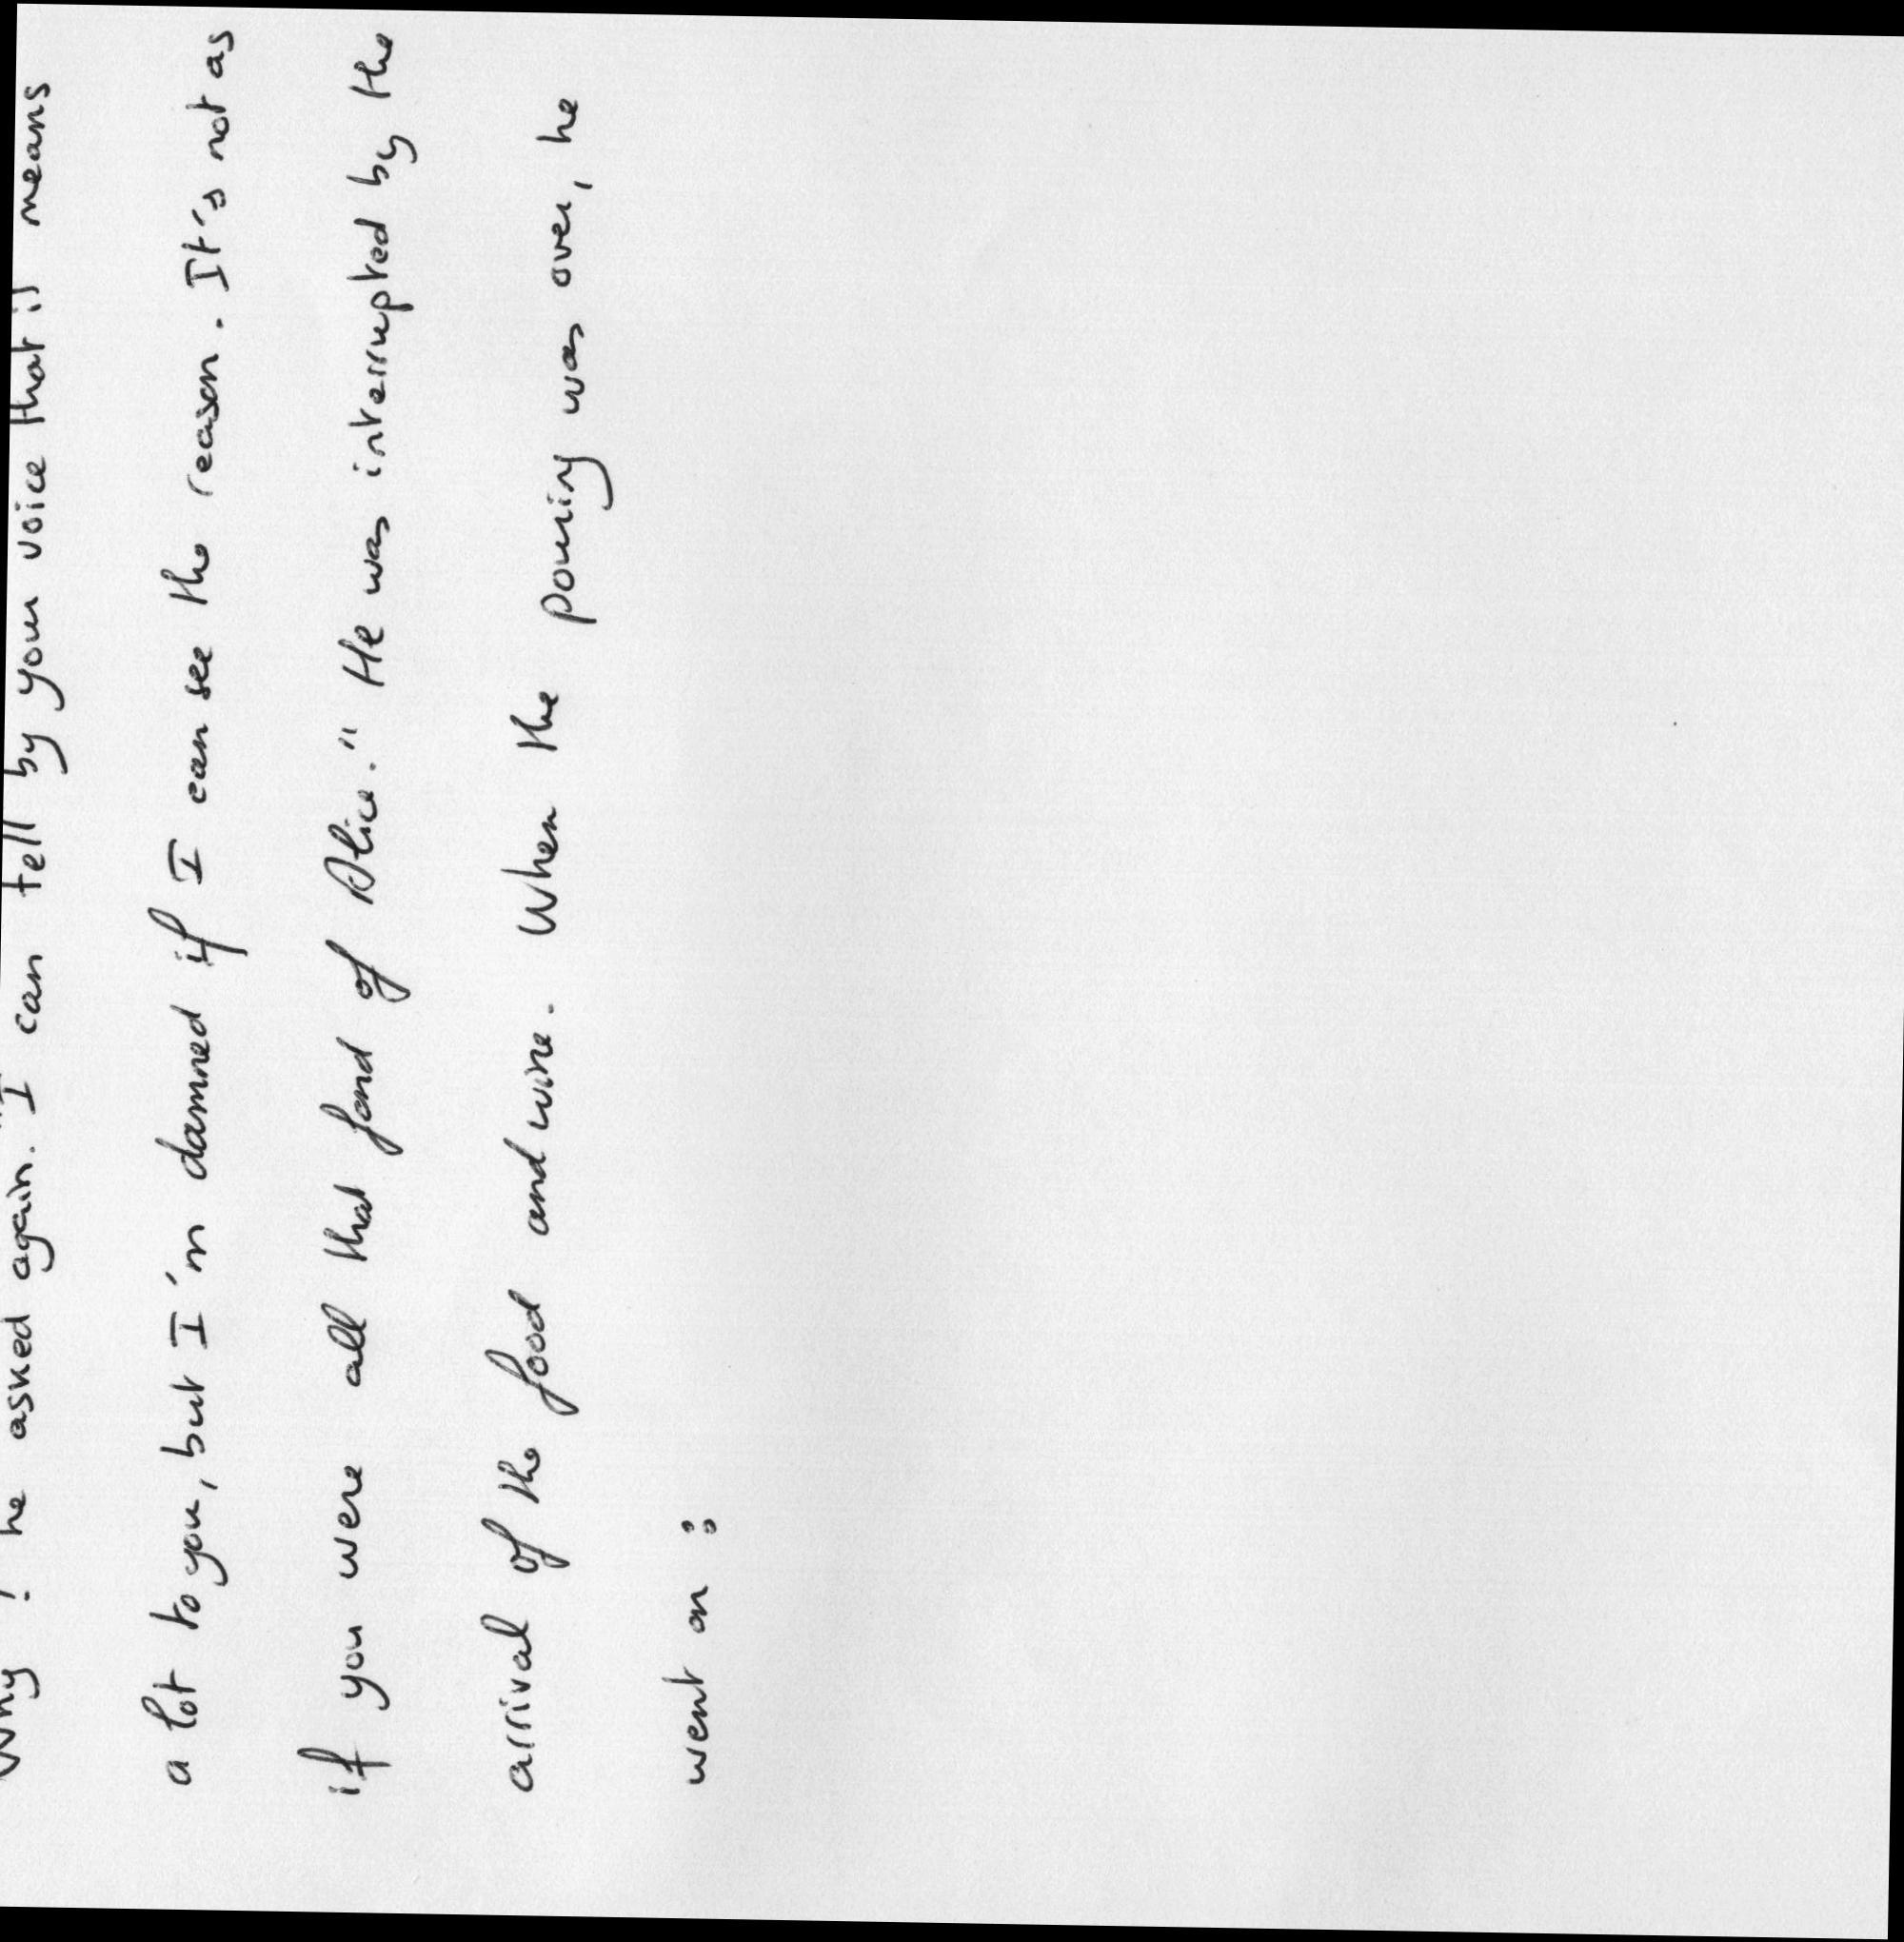 Why? he asked again. "I can tell by your voice that it means
a lot to you, but I'm damned if I can see the reason. It's not as
if you were all that fond of Alice." He was interrupted by the
arrival of the food and wine. When the pouring was over, he
went on :